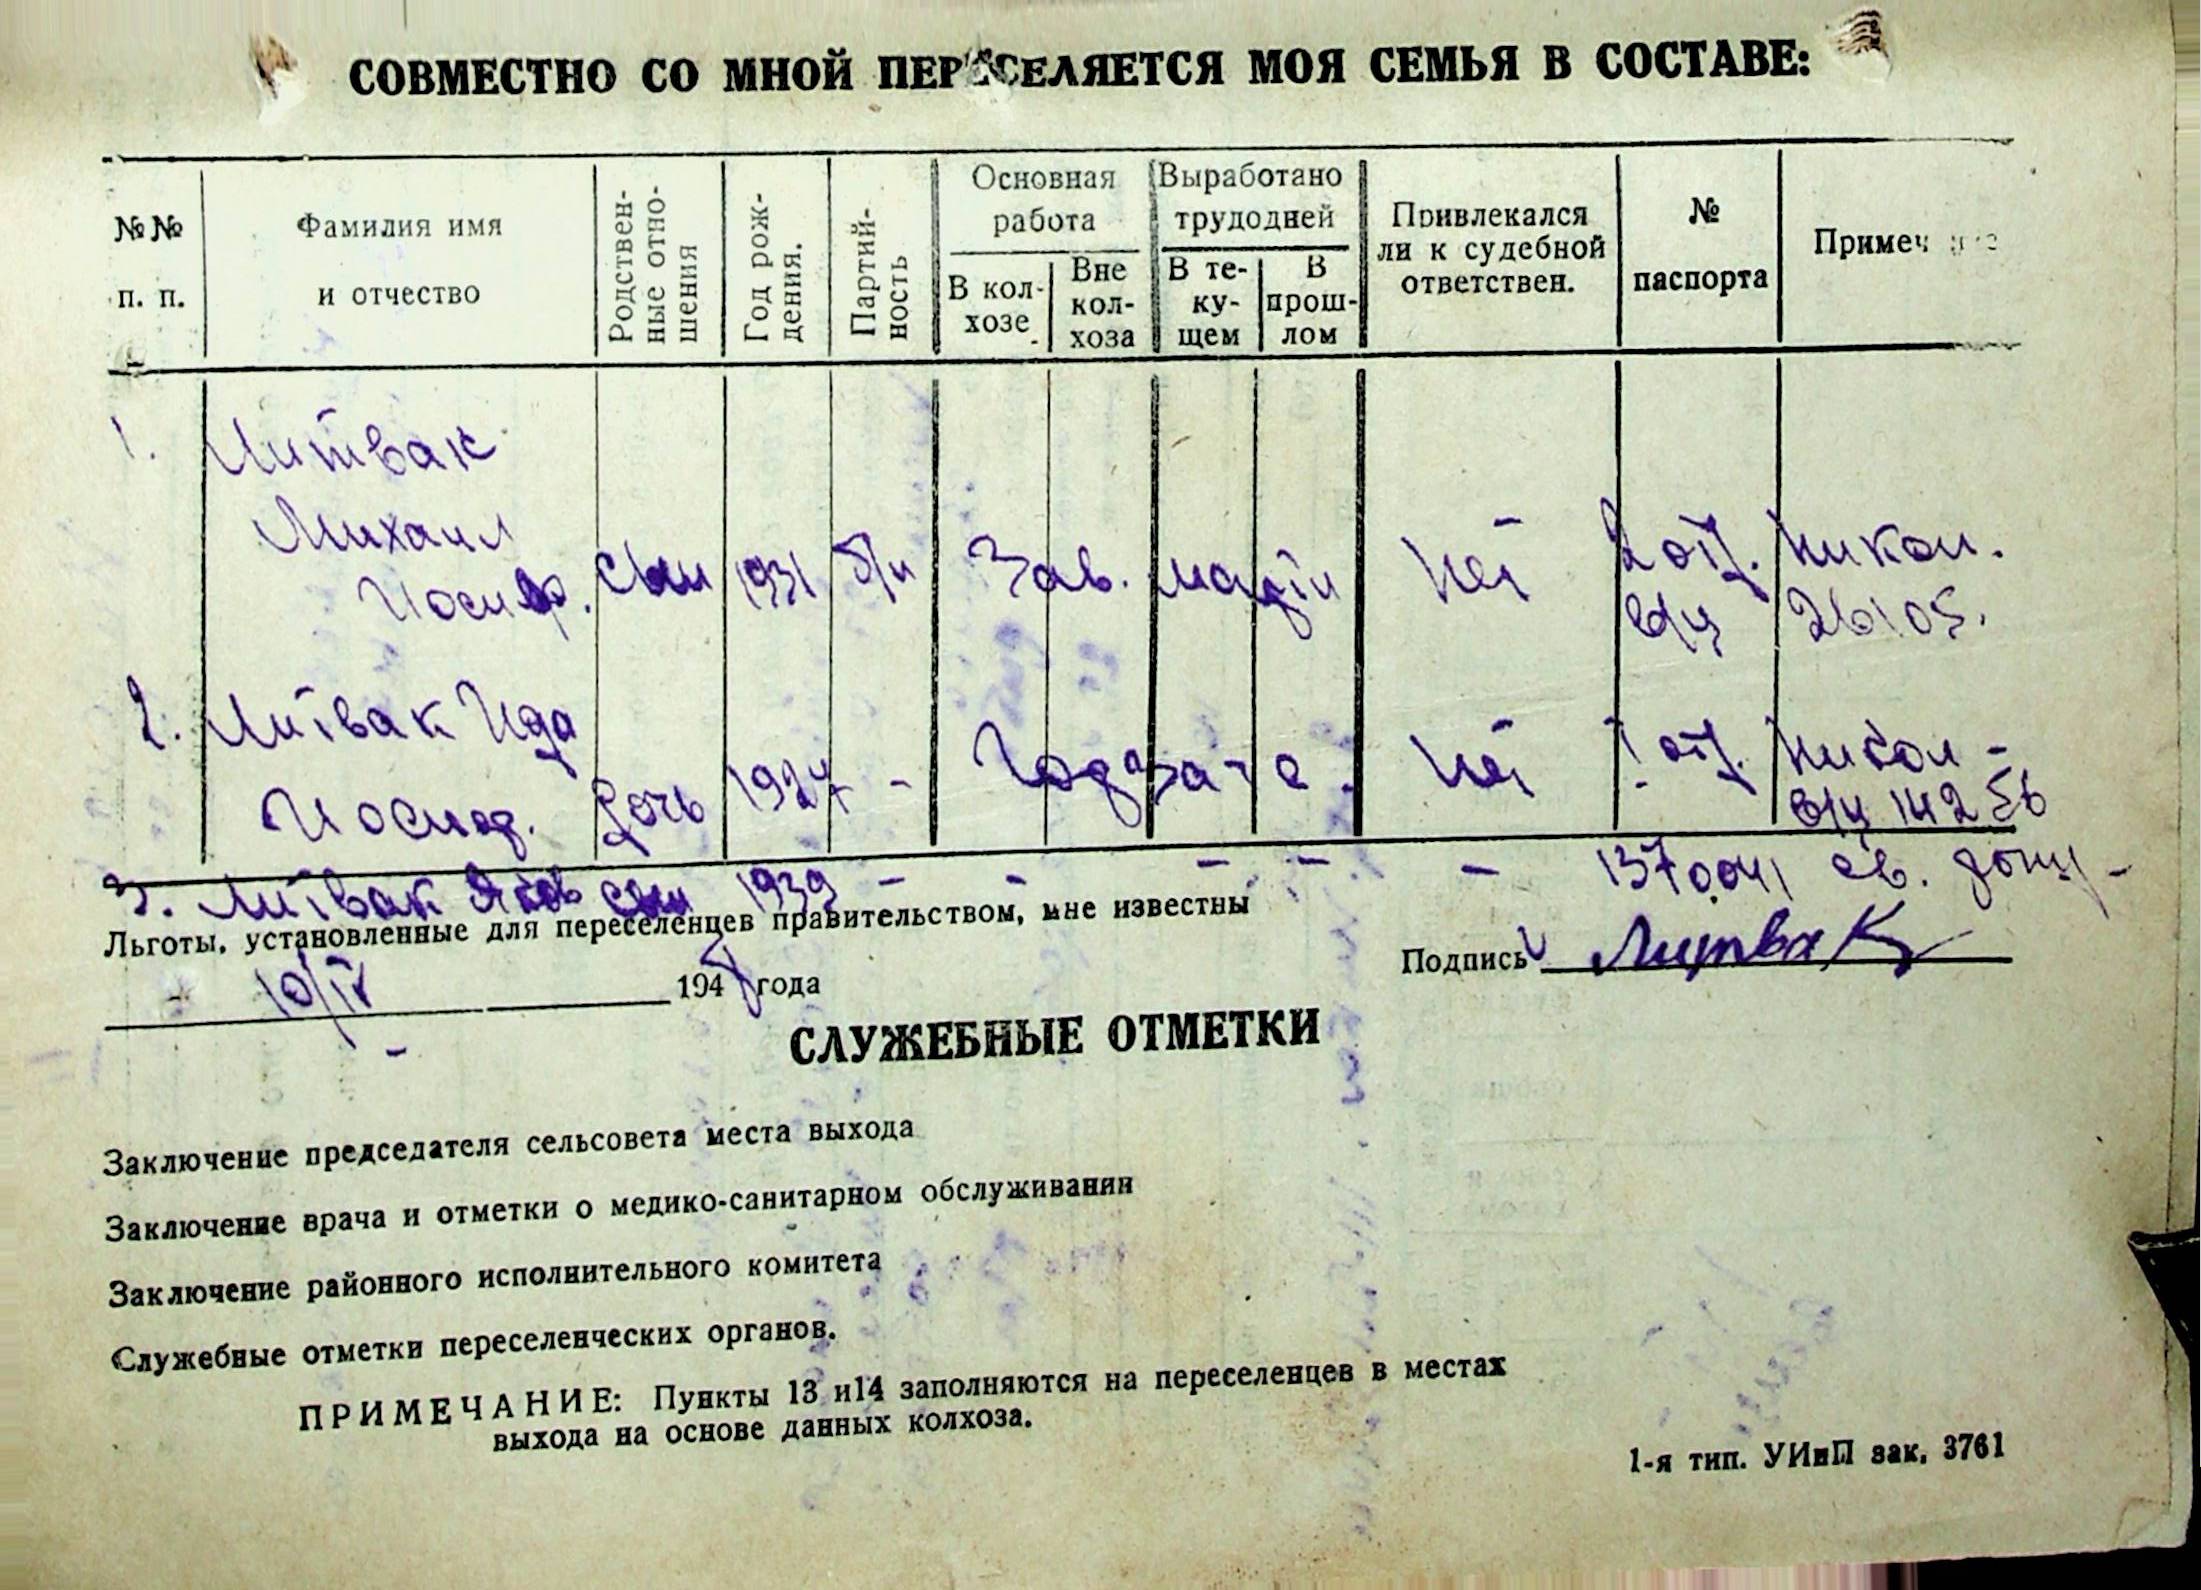 СОВМЕСТНО СО МНОЙ ПЕРЕСЕЛЯЕТСЯ МОЯ СЕМЬЯ В СОСТАВЕ:
№№ п. п.
Фамилия имя и отчество
Родствен-ные отно-шения
Год рож-дения.
Партий-ность
Основная работа
В кол-хозе
Вне кол-хоза
Выработано трудодней
В те-ку-щем
В прош-лом
Привлекался ли к судебной ответствен.
№ паспорта
Примеч
1. Литвак
Михаил
Иосиф. сын 1931 б/п Зав. нет 2 отд. Никол.
в/ч 26105.
2. Литвак Ида
Иосиф. дочь 1927 - нет 1 отд. Никол -
в/ч 14256
3. Литвак Яков сын 1939 - - - - - 137004 св.
Льготы, установленные для переселенцев правительством, мне известны
10/IV 194 года
Подпись Литвак
СЛУЖЕБНЫЕ ОТМЕТКИ
Заключение председателя сельсовета места выхода
Заключение врача и отметки о медико-санитарном обслуживании
Заключение районного исполнительного комитета
Служебные отметки переселенческих органов.
ПРИМЕЧАНИЕ: Пункты 13 и14 заполняются на переселенцев в местах
выхода на основе данных колхоза.
1-я тип. УИиП зак, 3761